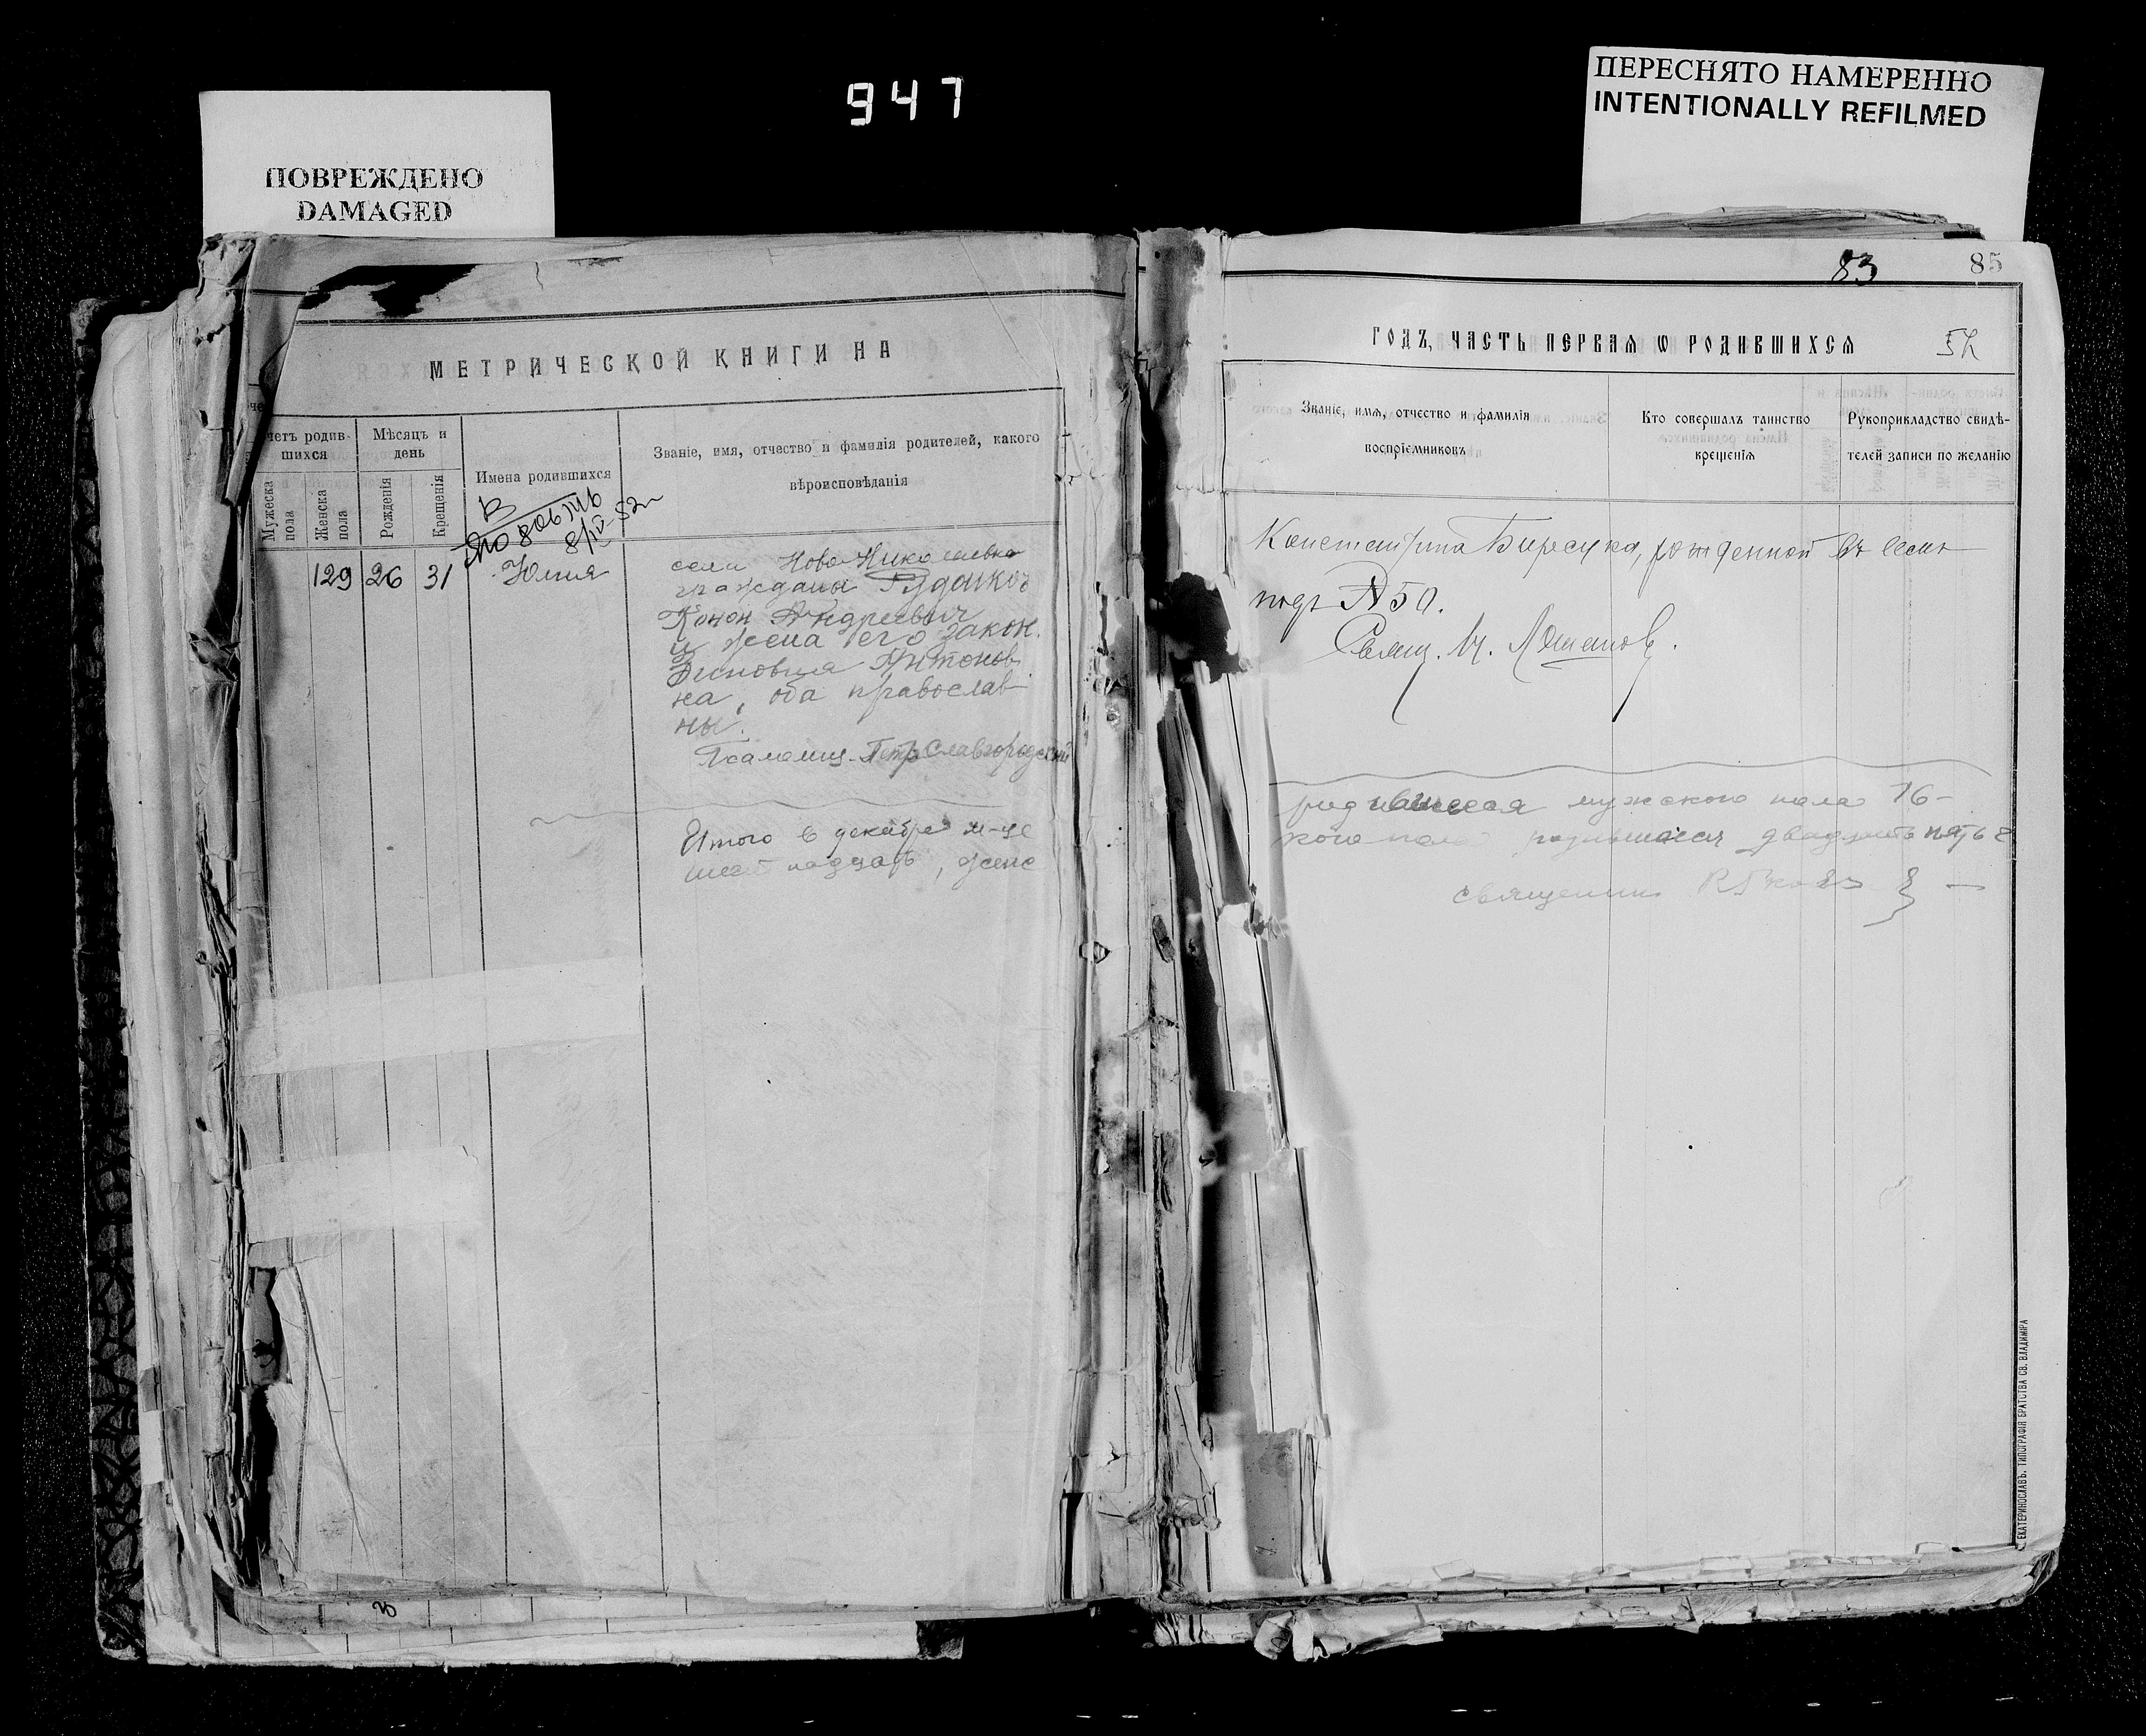 947
ПОВРЕЖДЕНО
DAMAGED
ПЕРЕСНЯТО НАМЕРЕННО
INTENTIONALLY REFILMED
МЕТРИЧЕСКОЙ КНИГИ НА
четъ родив-
шихся
Мѣсяцъ и
день
Имена родившихся
Званіе, имя, отчество и фамилія родителей, какого
вѣроисповѣданія
Мужеска
пола
Женска
пола
Рожденія
Крещенія
8/IV-52
129 26 31 Юлия
села Ново-Николаевка
граждане Рудаков
Конон Андреевич
и жена его закон.
Зиновия Антонов
на, оба православ-
ны.
Псаломщ. Петр Славгородский
Итого в декабре м-це
шестнадцать, женс
83
85
ГОДЪ, ЧАСТЬ ПЕРВАЯ Ѡ РОДИВШИХСЯ
Званіе, имя, отчество и фамилія
воспріемниковъ
Кто совершалъ таинство
крещенія
Рукоприкладство свидѣ-
телей записи по желанію
рожденной въ
подъ № 50.
Свящ.
родившихся мужского пола 16-
кого пола родившихся двадцать пять
священник
ЕКАТЕРИНОСЛАВЪ. ТИПОГРАФІЯ БРАТСТВА СВ. ВЛАДИМІРА